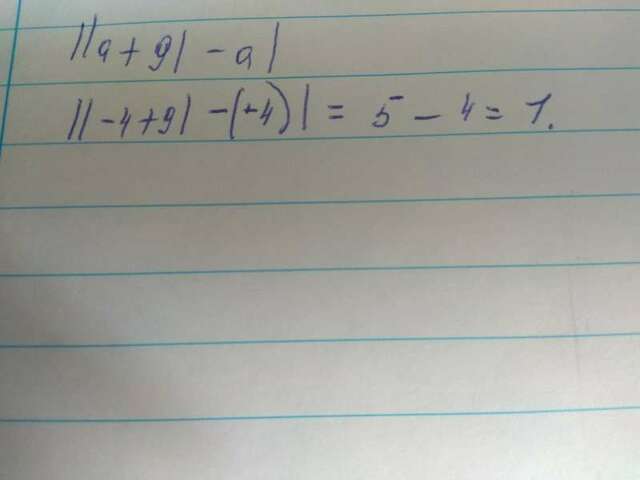 ||a + 9| - a|
||-4+9| -(-4)| = 5 - 4 = 1.